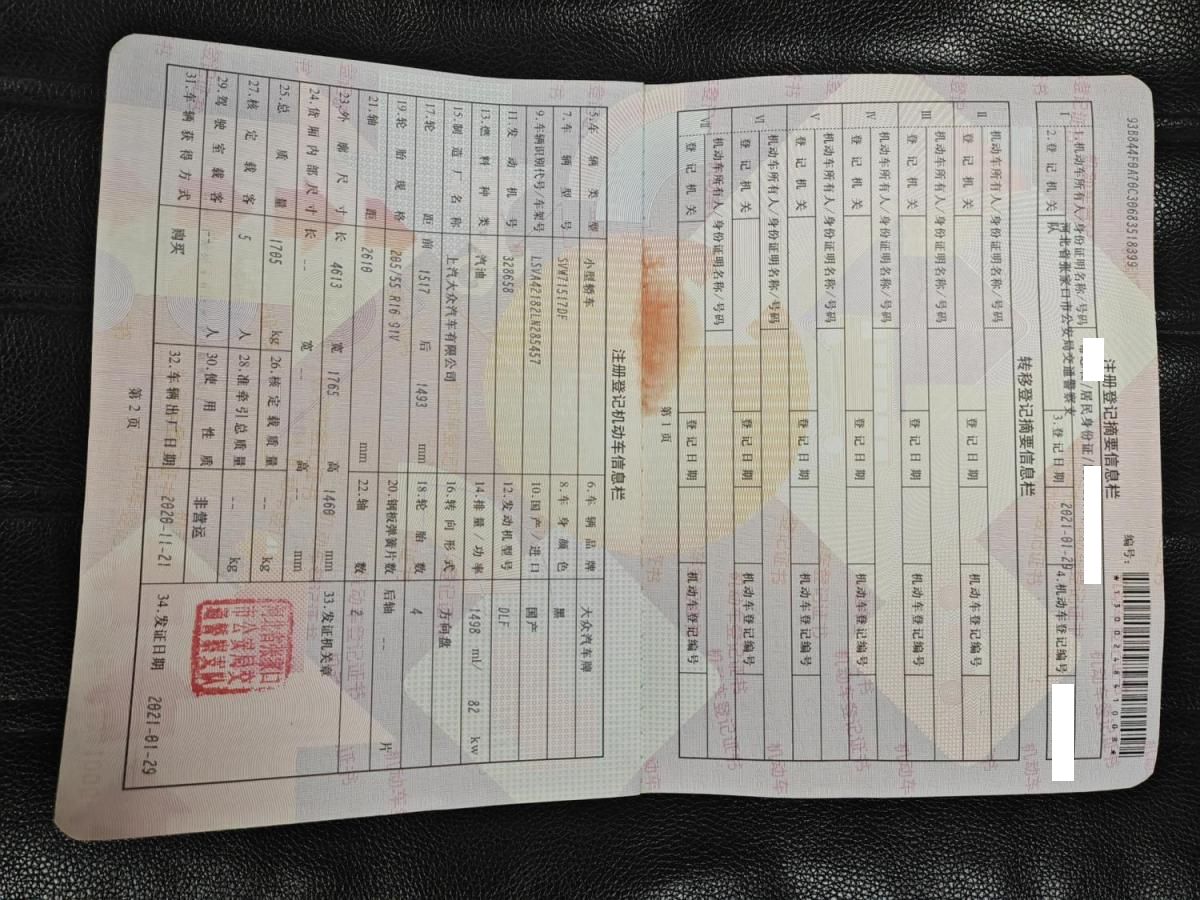 93B844F0A70C30683518399
编号:
*130024841008*
注册登记摘要信息栏
I 1.机动车所有人/身份证明名称/号码 /居民身份证/
2.登记机关 河北省张家口市公安局交通警察支队 3.登记日期 2021-01-29 4.机动车登记编号
转移登记摘要信息栏
II 机动车所有人/身份证明名称/号码
登记机关 登记日期 机动车登记编号
III 机动车所有人/身份证明名称/号码
登记机关 登记日期 机动车登记编号
IV 机动车所有人/身份证明名称/号码
登记机关 登记日期 机动车登记编号
V 机动车所有人/身份证明名称/号码
登记机关 登记日期 机动车登记编号
VI 机动车所有人/身份证明名称/号码
登记机关 登记日期 机动车登记编号
VII 机动车所有人/身份证明名称/号码
登记机关 登记日期 机动车登记编号
第1页
注册登记机动车信息栏
5.车辆类型 小型轿车 6.车辆品牌 大众汽车牌
7.车辆型号 SVW71517DF 8.车身颜色 黑
9.车辆识别代号/车架号 LSVA42182LN285457 10.国产/进口 国产
11.发动机号 328658 12.发动机型号 DLF
13.燃料种类 汽油 14.排量/功率 1498 ml/ 82 kw
15.制造厂名称 上汽大众汽车有限公司 16.转向形式 方向盘
17.轮距 前 1517 后 1493 mm 18.轮胎数 4
19.轮胎规格 205/55 R16 91V 20.钢板弹簧片数 后轴 -- 片
21.轴距 2610 mm 22.轴数 2
23.外廓尺寸 长 4613 宽 1765 高 1460 mm 33.发证机关章
24.货厢内部尺寸 长 -- 宽 -- 高 -- mm
25.总质量 1705 kg 26.核定载质量 -- kg
27.核定载客 5 人 28.准牵引总质量 -- kg
29.驾驶室载客 -- 人 30.使用性质 非营运
河北省张家口市公安局交通警察支队
31.车辆获得方式 购买 32.车辆出厂日期 2020-11-21 34.发证日期 2021-01-29
第2页